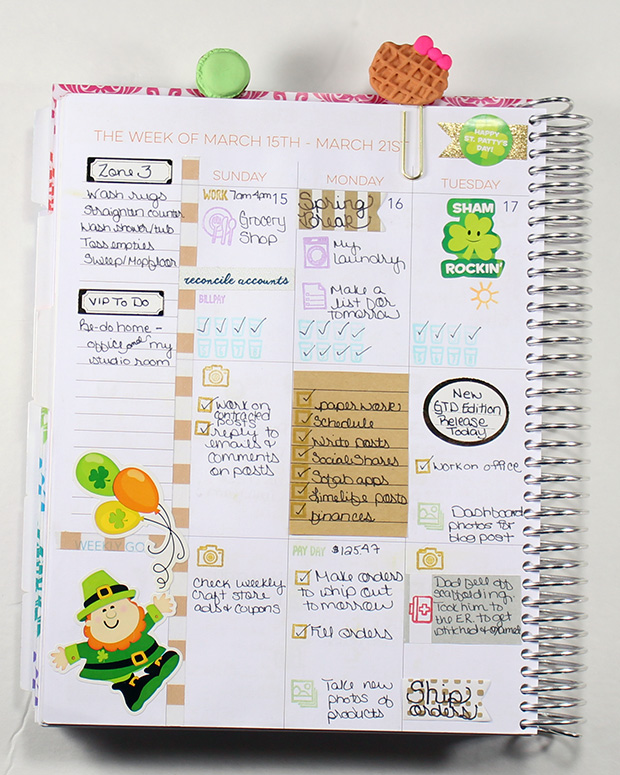 THE WEEK OF MARCH 15TH - MARCH 21ST
HAPPY
ST. PATTY'S
DAY!
Zone 3
Wash rugs
Straighten counter
Wash shower/tub
Toss empties
Sweep/Mop floor
VIP To Do
Re-do home -
office and my
studio room
WEEKLY GO
SUNDAY
WORK 7am-4pm 15
Grocery
Shop
reconcile accounts
BILLPAY
Work on
contracted
posts
reply to
emails &
comments
on posts
Check weekly
craft store
ads & coupons
MONDAY
Spring
Break
16
My
laundry
Make a
list for
tomorrow
paperwork
Schedule
Write posts
Social Shares
apps
posts
finances
PAY DAY $125.47
Make orders
to whip out
tomorrow
Fill orders
Take new
photos of
products
TUESDAY
17
SHAM
ROCKIN'
New
STD Edition
Release
Today
Work on office
Dashboard
photos for
blog post
Dad fell off
scaffolding.
Took him to
the E.R. to get
stitched &
Ship
orders